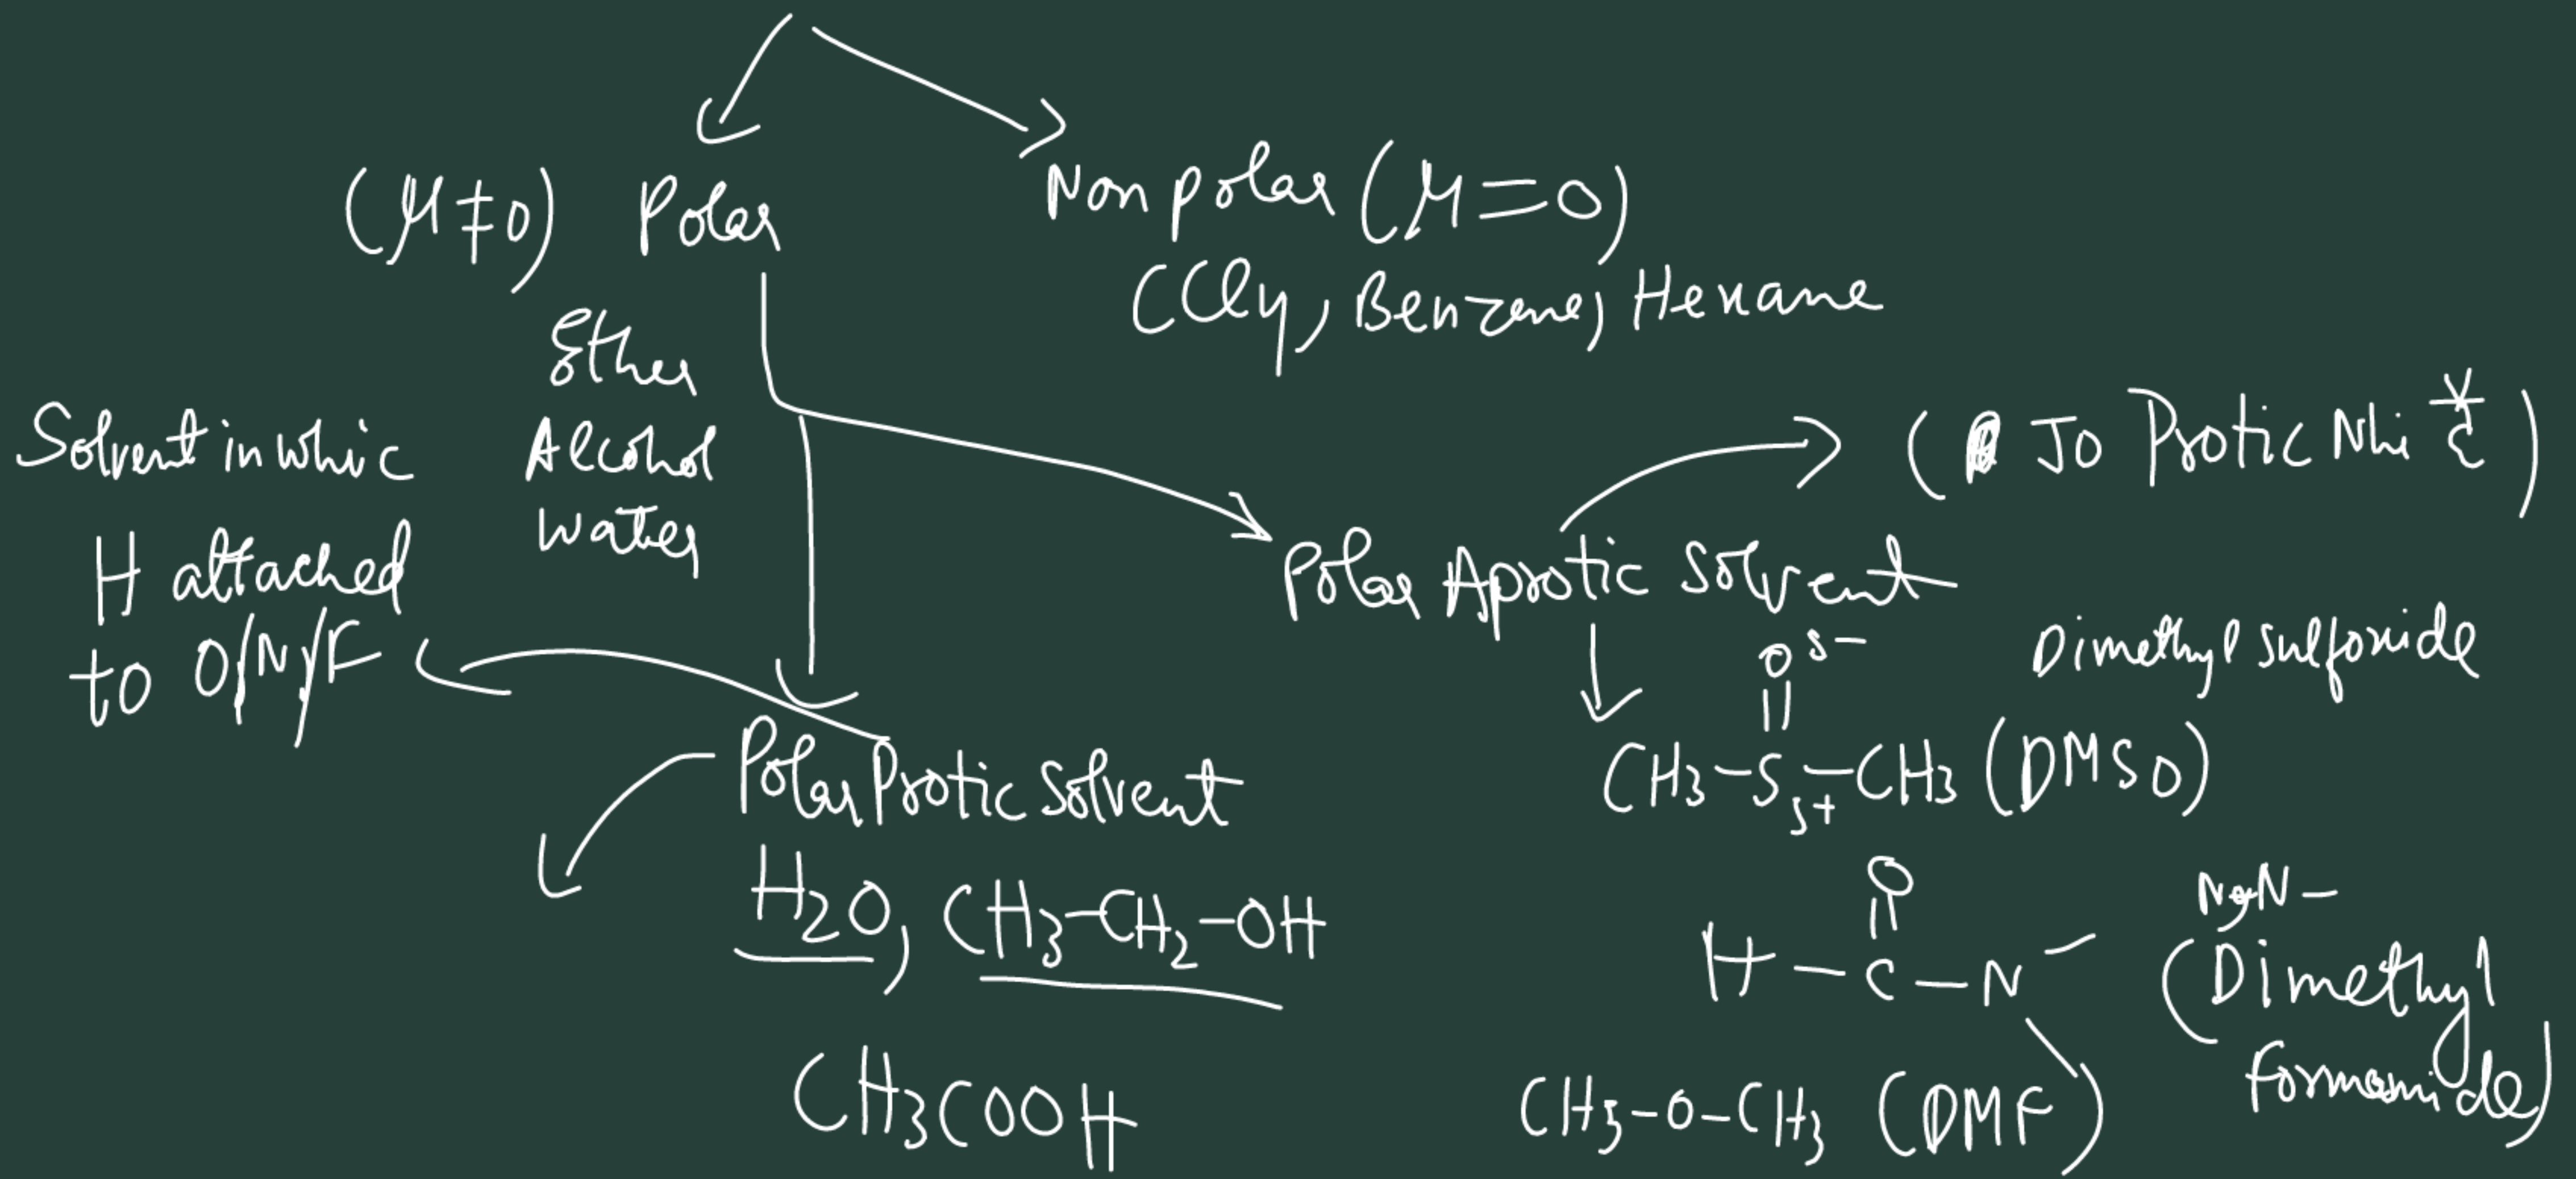 (μ≠0) Polar
Non polar (μ=0)
CCl4, Benzene, Hexane
Ether
Alcohol
Water
Solvent in whic
H attached
to O/N/F
(Jo Protic Nhi है)
Polar Aprotic Solvent
Dimethyl sulfoxide
O δ-
||
CH3-S-CH3 (DMSO)
δ+
Polar Protic Solvent
H2O, CH3-CH2-OH
CH3COOH
O
||
H-C-N-
N,N-
(Dimethyl
formamide)
CH3-O-CH3 (DMF)